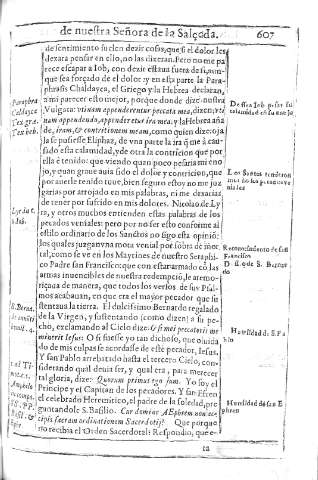 de nuestra Señora de la Salceda.
607
de sentimiento suelen dezir cosas, que si el dolor les
dexara pensar en ello, no las dixeran. Pero no me pa
rece escapar a Iob, con dezir estaua fuera de si, aun-
que sea forçado de el dolor: y en esta parte la Para-
phrasis Chaldayca, el Griego y la Hebrea declaran,
a mi parecer esto mejor, porque donde dize nuestra
Vulgata: vtinam appenderentur peccata mea, dizen: vti
nam appendendo, appenderetur ira mea: y la Hebrea aña
de, iram, & contritionem meam, como quien dize: o ja
la se pusiesse Eliphaz, de vna parte la ira que à cau-
sado esta calamidad, y de otra la contricion que por
ella è tenido: que viendo quan poco pesaria mi eno
jo, y quan graue auia sido el dolor y contricion, que
por auerle tenido tuue, bien seguro estoy no me juz
garias por arrojado en mis palabras, ni me dexarias
de tener por sufrido en mis dolores. Nicolao de Ly
ra, y otros muchos entienden estas palabras de los
pecados veniales: pero por no ser esto conforme al
estilo ordinario de los Sanctos no sigo esta opinió:
los quales juzgan vna mota venial por sobra de mor
tal, como se ve en los Maytines de nuestro Seraphi
co Padre san Francisco: que con estar armado cõ las
armas inuencibles de nuestra redempciõ, le atemo-
riçaua de manera, que todos los versos de sus Psal-
mos acabauan, en que era el mayor pecador que se
sustentaua la tierra. El dulcissimo Bernardo regalado
de la Virgen, y sustentando (como dizen) a su pe-
cho, exclamando al Cielo dize: O si mei peccatoris me
minerit Iesus! O si fuesse yo tan dichoso, que oluida
do de mis culpas se acordasse de este pecador, Iesus.
Y san Pablo arrebatado hasta el tercero Cielo, con-
siderando qual deuia ser, y qual era, para merecer
tal gloria, dize: Quorum primus ego sum. Yo soy el
Principe y el Capitan de los pecadores. Y san Efren
el celebrado Heremitico, el padre de la soledad, pre
guntandole S. Basilio. Cur domine Æphrem non ac-
cipis sacram ordinationem Sacerdotij? Que porque
no recibia el Orden Sacerdotal: Respondio, que e-
ta
Paraphra
Caldayca
Tex. græ.
Tex. heb.
Lyr. du c.
6. Iob.
S. Bernar.
1. ad Ti-
Los Santos tuuieron
Reconocimiento de San
Francisco
Humildad de S. Pa
blo
Humildad de san E-
phren